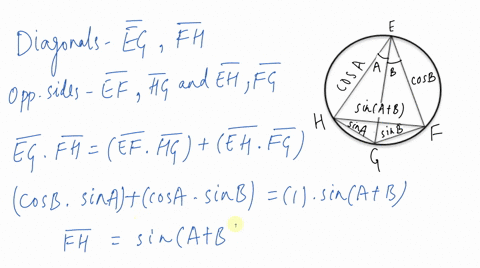 Diagonals - E̅G̅ , F̅H̅
Opp. sides - E̅F̅ , H̅G̅ and E̅H̅ , F̅G̅
E̅G̅ . F̅H̅ = (E̅F̅ . H̅G̅) + (E̅H̅ . F̅G̅)
(cosB . sinA) + (cosA . sinB) = (1) . sin(A+B)
F̅H̅ = sin(A+B
E
A
B
cosA
cosB
sin(A+B)
H
sinA
sinB
F
G